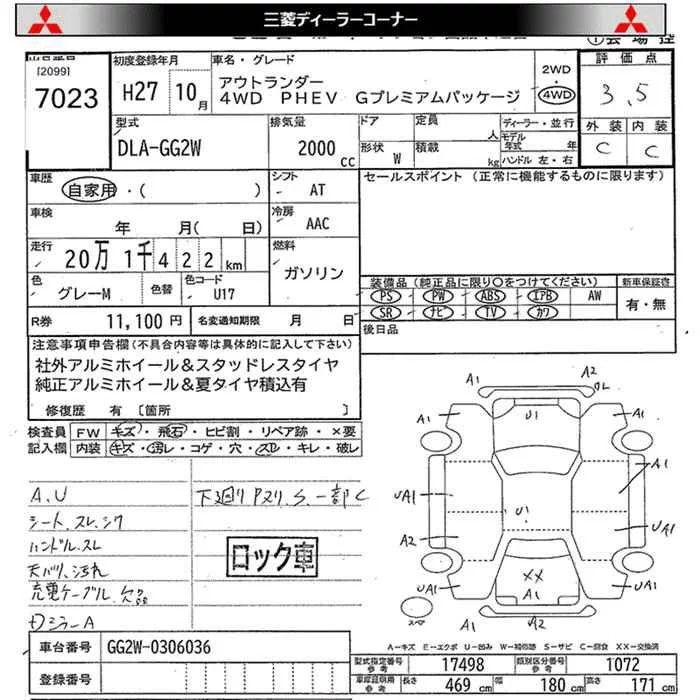 三菱ディーラーコーナー
[2099]
7023
初度登録年月
H27 10月
車名・グレード
アウトランダー
4WD PHEV Gプレミアムパッケージ
2WD
4WD
評価点
3.5
外装 内装
C C
型式
DLA-GG2W
排気量
2000 cc
ドア
定員 人
形状 W
積載 kg
ディーラー・並行
モデル年式 年
ハンドル 左・右
車歴
自家用・( )
シフト
AT
車検
年 月( 日)
冷房
AAC
走行
20万 1千 4 2 2 km
燃料
ガソリン
色
グレーM
色替
色コード
U17
R券 11,100 円
名変通知期限 月 日
セールスポイント (正常に機能するものに限ります)
装備品 (純正品に限り○をつけてください)
新車保証書
PS PW ABS エアB AW
SR ナビ TV カワ
有・無
後日品
注意事項申告欄 (不具合内容等は具体的に記入して下さい)
社外アルミホイール&スタッドレスタイヤ
純正アルミホイール&夏タイヤ積込有
修復歴 有 [箇所 ]
検査員記入欄
FW キズ・飛石・ヒビ割・リペア跡・×要
内装 キズ・汚レ・コゲ・穴・スレ・キレ・破レ
A.U
シート、スレ、シワ
ハンドル、スレ
天バリ、汚れ
充電ケーブル、欠品
下廻りPスリ、S、一部C
ロック車
A2
A1 U1 A1
A1
UA1 U1
A2 UA1
XX
UA1 A1 UA1
A2
A-キズ E-エクボ U-凹ミ W-補修跡 S-サビ C-腐食 XX-交換済
車台番号 GG2W-0306036
登録番号
型式指定番号 参考 17498
類別区分番号 参考 1072
車庫証明用 参考 長さ 469 cm 幅 180 cm 高さ 171 cm